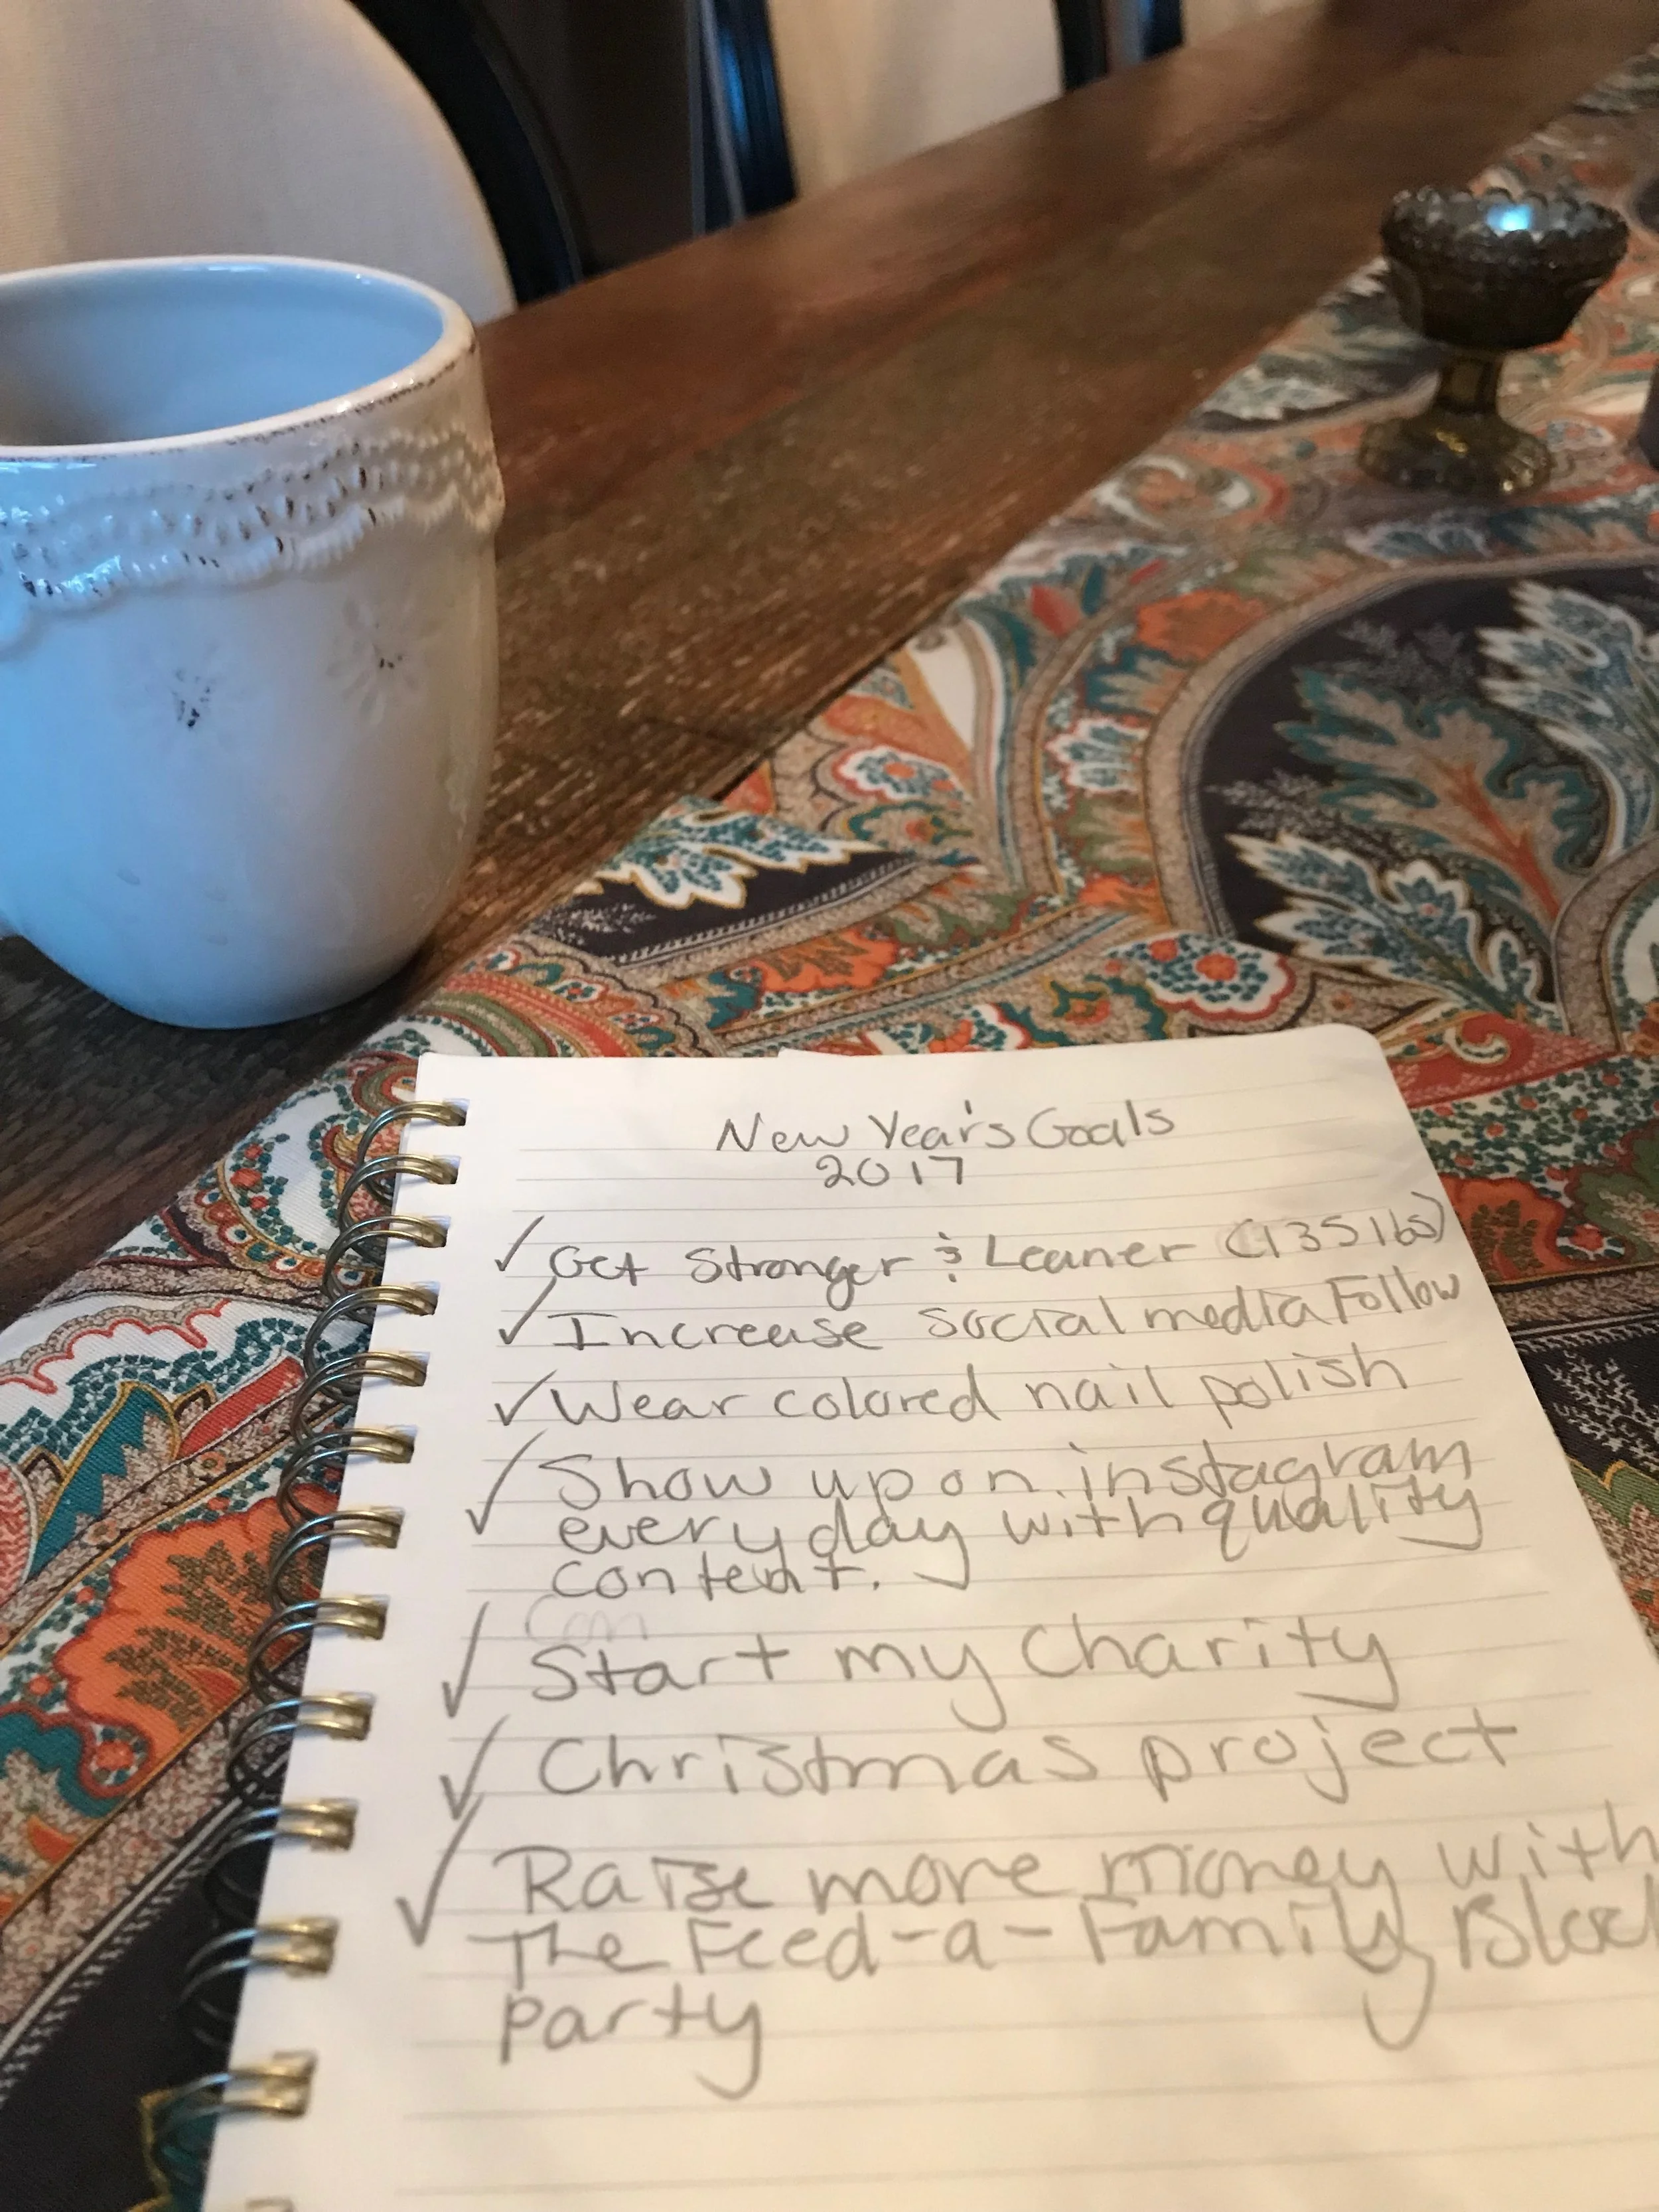 New Year's Goals
2017
✓ Get Stronger & Leaner (135 lbs)
✓ Increase social media Follow
✓ Wear colored nail polish
✓ Show up on instagram
every day with quality
content.
✓ Start my charity
✓ Christmas project
✓ Raise more money with
The Feed-a-Family
party